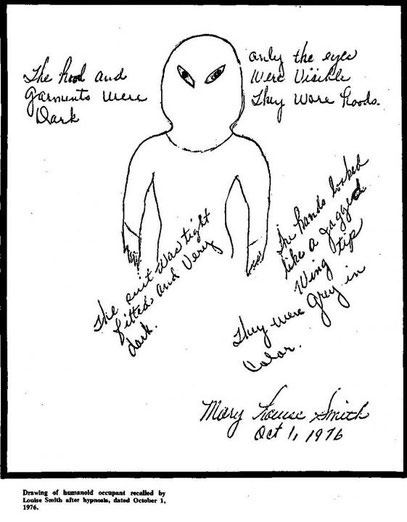 The hood and
garments were
Dark
only the eyes
Were Visible
They Wore hoods.
The suit was tight
fitted and Very
dark.
The hands looked
like a jagged
Wing tip
They were Grey in
Color.
Mary Louise Smith
Oct 1, 1976
Drawing of humanoid occupant recalled by
Louise Smith after hypnosis, dated October 1,
1976.